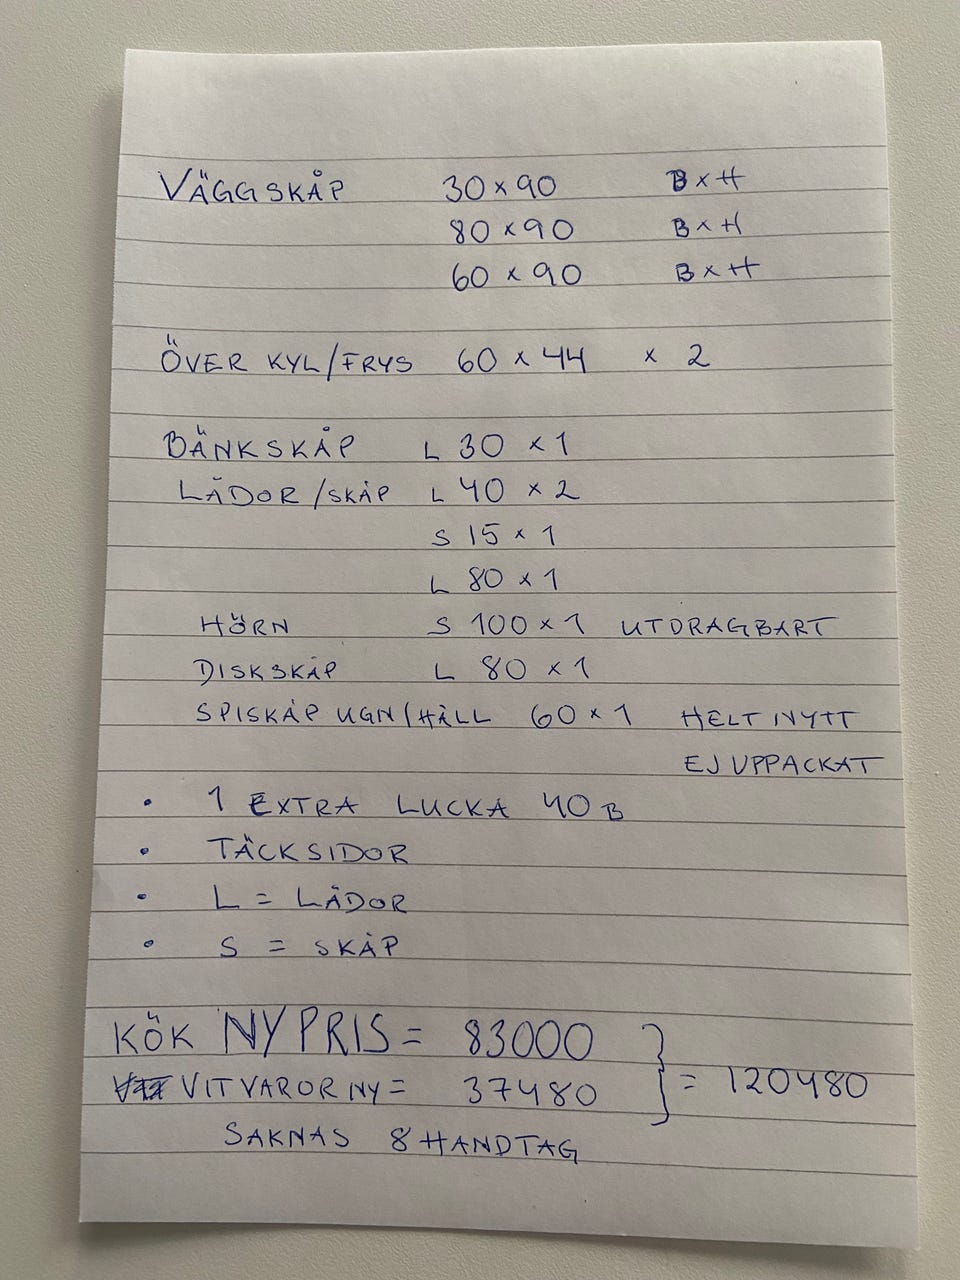 VÄGGSKÅP 30 x 90 B x H
80 x 90 B x H
60 x 90 B x H
ÖVER KYL/FRYS 60 x 44 x 2
BÄNKSKÅP L 30 x 1
LÅDOR/SKÅP L 40 x 2
S 15 x 1
L 80 x 1
HÖRN S 100 x 1 UTDRAGBART
DISKSKÅP L 80 x 1
SPISKÅP UGN/HÄLL 60 x 1 HELT NYTT
EJ UPPACKAT
• 1 EXTRA LUCKA 40 B
• TÄCKSIDOR
• L = LÅDOR
• S = SKÅP
KÖK NY PRIS = 83000
VITVAROR NY = 37480 } = 120480
SAKNAS 8 HANDTAG